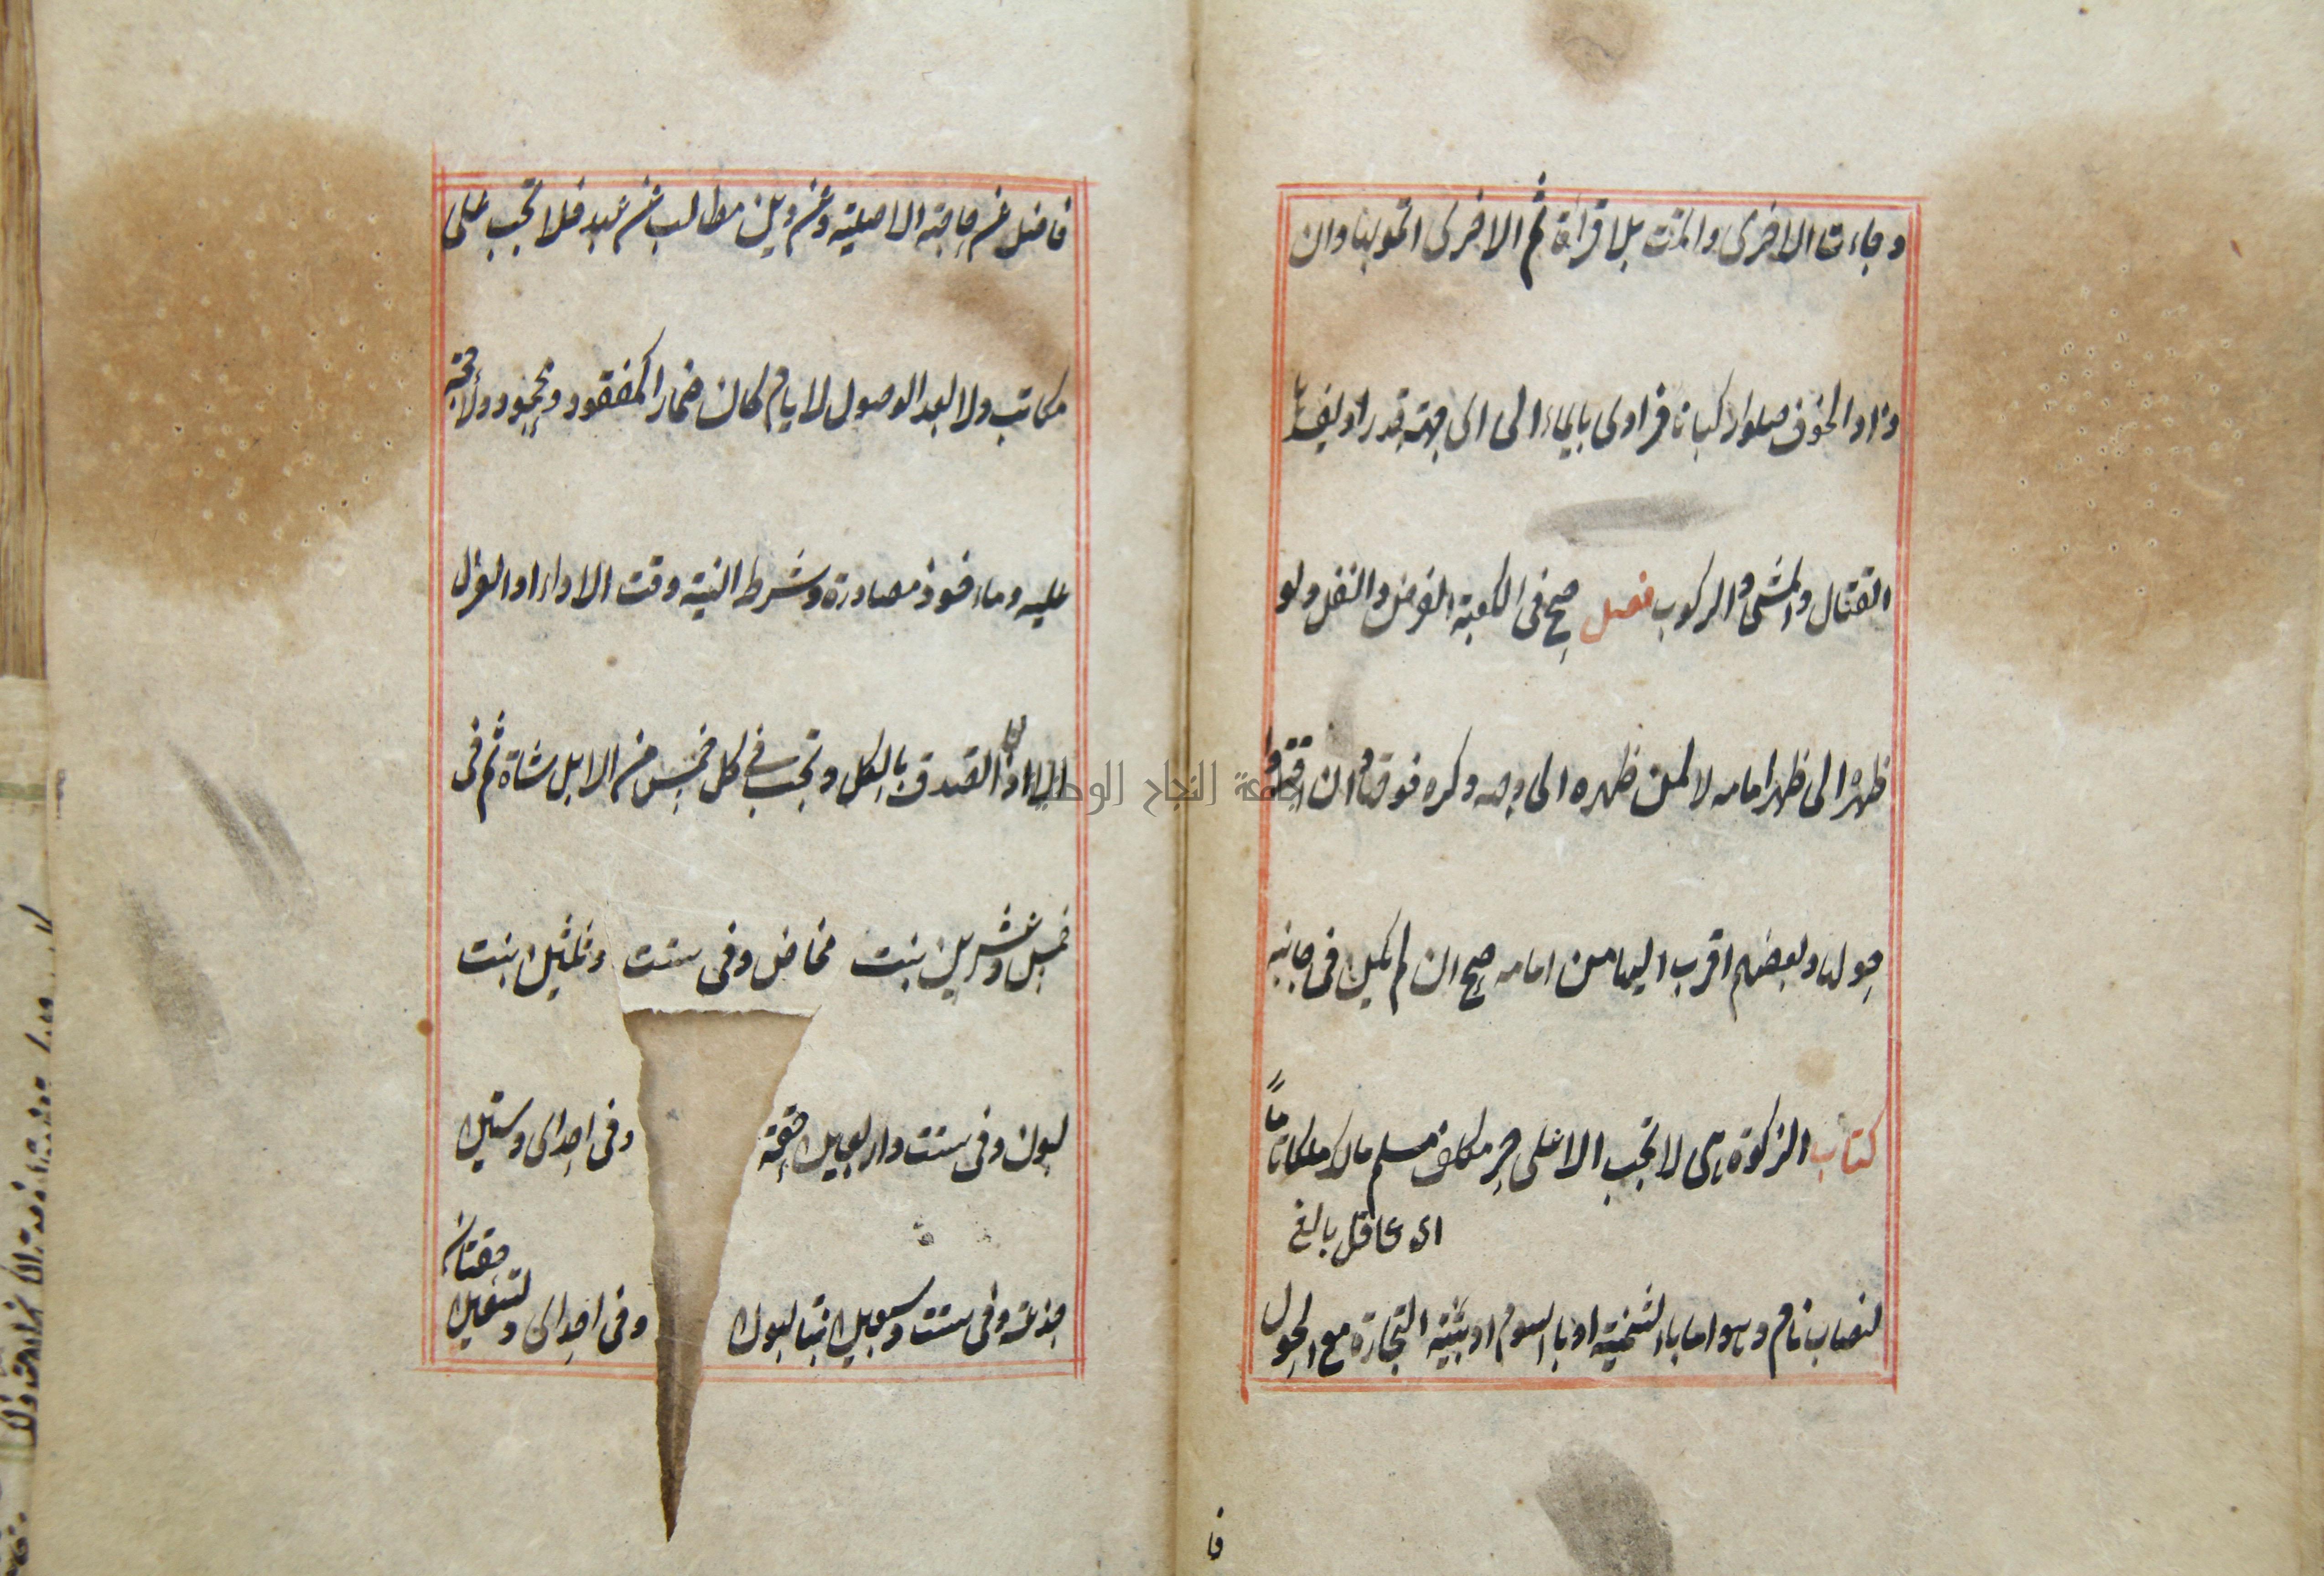 وجاءت الاخرى واتمت بلا قراءة ثم الاخرى اتموا بها وان
زاد الخوف صلوا ركبانا فرادى بايماء الى اى جهة قدروا ويفسدها
القتال والمشى والركوب فصل صح فى الكعبة الفرض والنفل ولو
ظهره الى ظهر امامه لا لمن ظهره الى وجهه وكره فوقها وان اقتدوا
حولها وبعضهم اقرب اليها من امامه صح ان لم يكن فى جانبه
كتاب الزكوة هى لا تجب الا على حر مكلف مسلم مالك ملكا تاما
اى عاقل بالغ
لنصاب نام وهو اما بالثمنية او بالسوم او بنية التجارة مع الحول
فا
فاضل عن حاجته الاصلية وعن دين مطالب من عبد فلا تجب على
مكاتب ولا بعد الوصول لايام كان ضمارا كمفقود ومجحود ولا حجة
عليه وماخوذ مصادرة وشرط النية وقت الاداء او العزل
الا اذا تصدق بالكل وتجب فى كل خمس من الابل شاة ثم فى
خمس وعشرين بنت مخاض وفى ست وثلثين بنت
لبون وفى ست واربعين حقة وفى احدى وستين
جذعة وفى ست وسبعين بنتا لبون وفى احدى وتسعين
حقتان
جامعة النجاح الوطنية